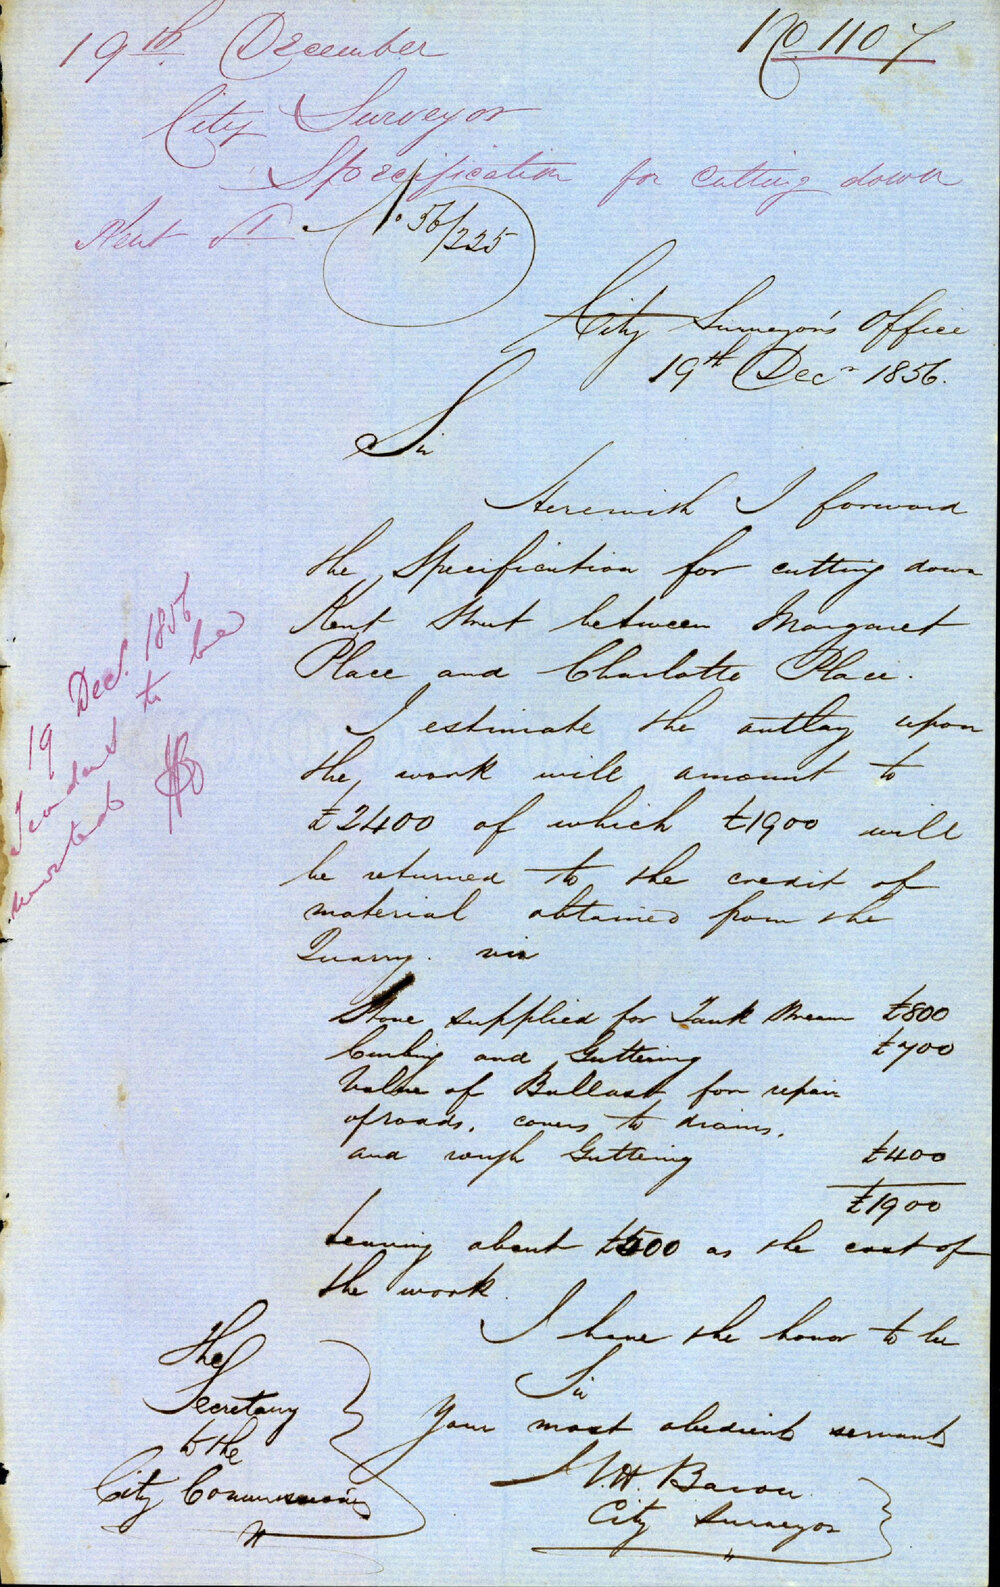 19th December
No 1107
City Surveyor
Specification for cutting down
Kent St
No 56/225
City Surveyor's Office
19th Decr 1856.
Sir
Herewith I forward
the Specification for cutting down
Kent Street between Margaret
Place and Charlotte Place.
I estimate the outlay upon
the work will amount to
£2400 of which £1900 will
be returned to the credit of
material obtained from the
Quarry. viz
Stone supplied for Tank Stream £800
Curbing and Guttering £700
Value of Ballast for repair
of roads, covers to drains,
and rough Guttering £400
£1900
Leaving about £500 as the cost of
the work.
I have the honor to be
Sir
Your most obedient servant
H. Baron
City Surveyor
The
Secretary
to the
City Commissioners
19 Dec. 1856
Tenders to be